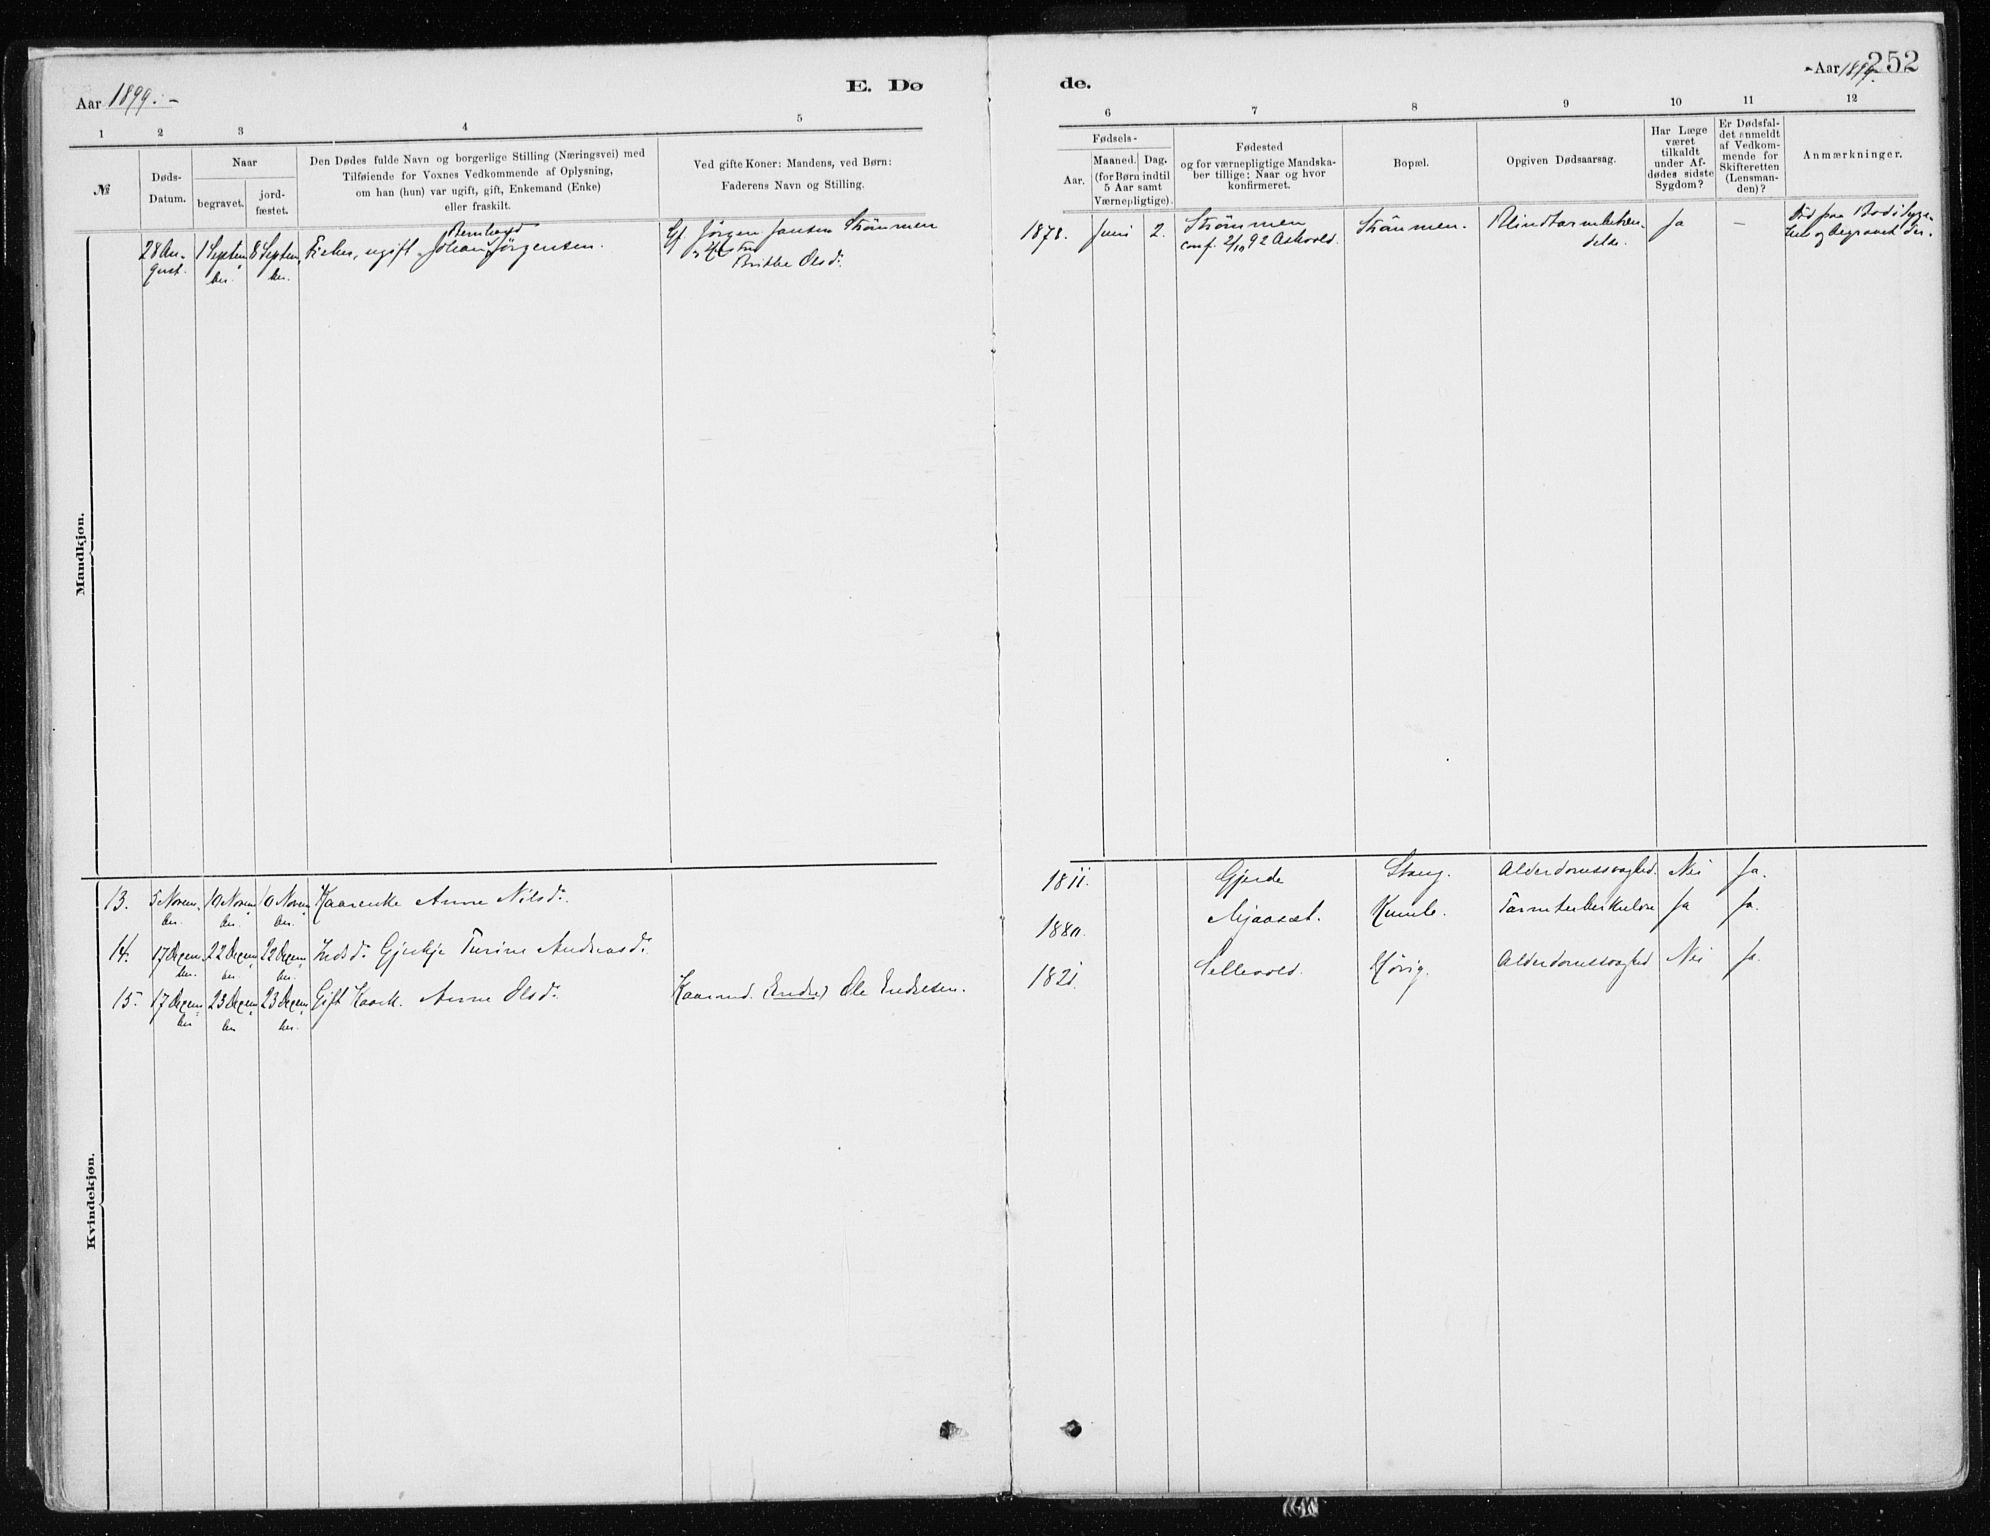 252
Aar 1899.
E. Dø
de.
Aar 1899.
1 2 3 4 5 6 7 8 9 10 11 12
№
Døds-
Datum.
Naar
begravet.
jord-
fæstet.
Den Dødes fulde Navn og borgerlige Stilling (Næringsvei) med
Tilføiende for Voxnes Vedkommende af Oplysning,
om han (hun) var ugift, gift, Enkemand (Enke)
eller fraskilt.
Ved gifte Koner: Mandens, ved Børn:
Faderens Navn og Stilling.
Fødsels-
Aar.
Maaned. Dag.
(for Børn indtil
5 Aar samt
Værnepligtige).
Fødested
og for værnepligtige Mandska-
ber tillige: Naar og hvor
konfirmeret.
Bopæl.
Opgiven Dødsaarsag.
Har Læge
været
tilkaldt
under Af-
dødes sidste
Sygdom?
Er Dødsfal-
det anmeldt
af Vedkom-
mende for
Skifteretten
(Lensman-
den)?
Anmærkninger.
Mandkjøn.
28 Au-
gust.
1 Septem
ber.
8 Septem
ber.
Bernhard
ugift Johan Jørgensen.
Gf Jørgen Jansen Strømmen
Brithe Olsd.
1878. Juni 2.
Strømmen
conf. 2/10 92 Askvold.
Strømmen.
Blindtarmbetæn-
delse.
Ja
—
Død paa Bodø Syge-
hus og begravet der.
Kvindekjøn.
13. 5 Novem
ber. 10 Novem
ber. 10 Novem
ber. Kaarenke Anne Nilsd. 1811. Gjerde Stang. Alderdomssvaghed. Nei Ja.
14. 17 Decem
ber. 22 Decem
ber. 22 Decem
ber. Andreasd. 1880. Kumle. Tarmtuberkulose Ja Ja.
15. 17 Decem
ber. 23 Decem
ber. 23 Decem
ber. Gift Kaark. Anne Olsd. Kaarmd. (Endre) Ole Endresen. 1821. Sellevold. Alderdomssvaghed Nei Ja.